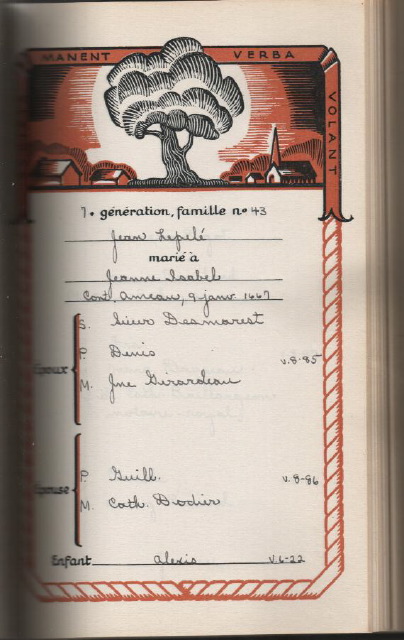 MANENT VERBA VOLANT
7e génération, famille no 43
Jean Lepelé
marié à
Jeanne Isabel
Cont. Ameau, 9 janv. 1667
S. Sieur Desmarest
Époux
P. Denis v. 8-85
M. Jne Girardeau
Épouse
P. Guill. v. 8-86
M. Cath. Dodier
Enfant Alexis v. 6-22